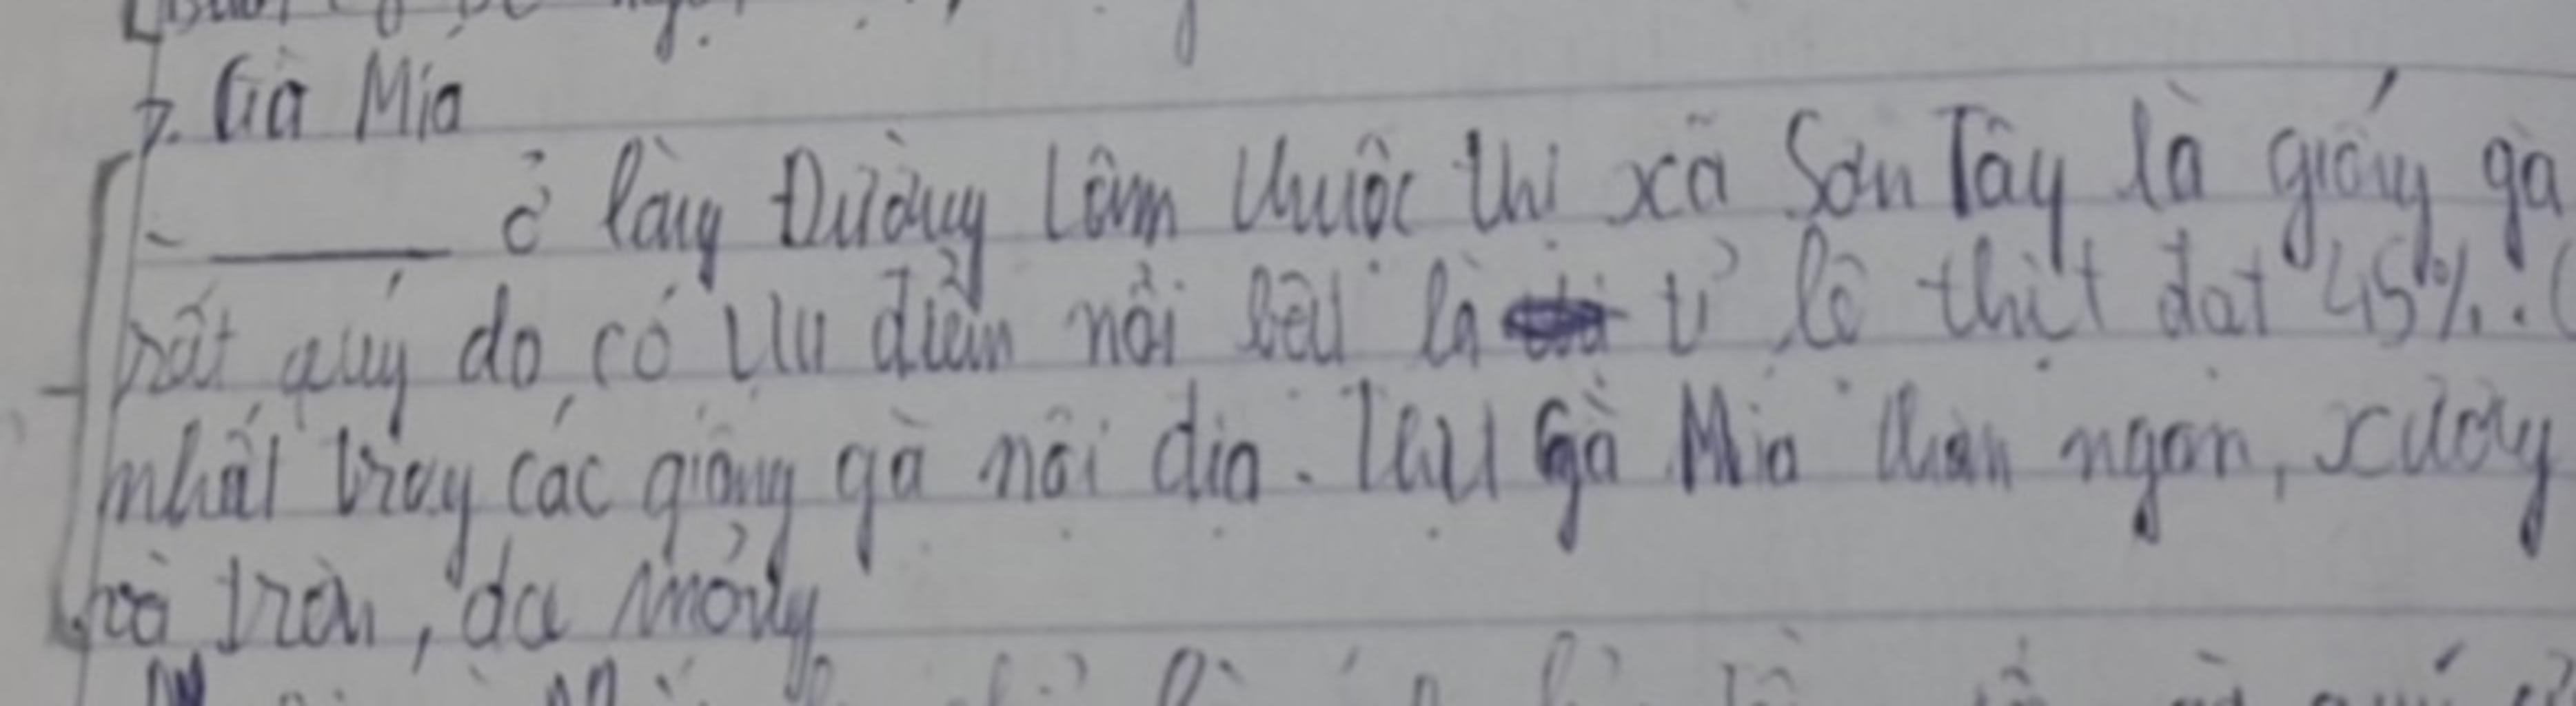 7. Gà Mía
- ______ ở làng Đường Lâm thuộc thị xã Sơn Tây là giống gà
rất quý do có ưu điểm nổi bật là tỉ lệ thịt đạt 45%. (
nhất trong các giống gà nội địa. Thịt Gà Mía ngon, xương
tròn, da mỏng